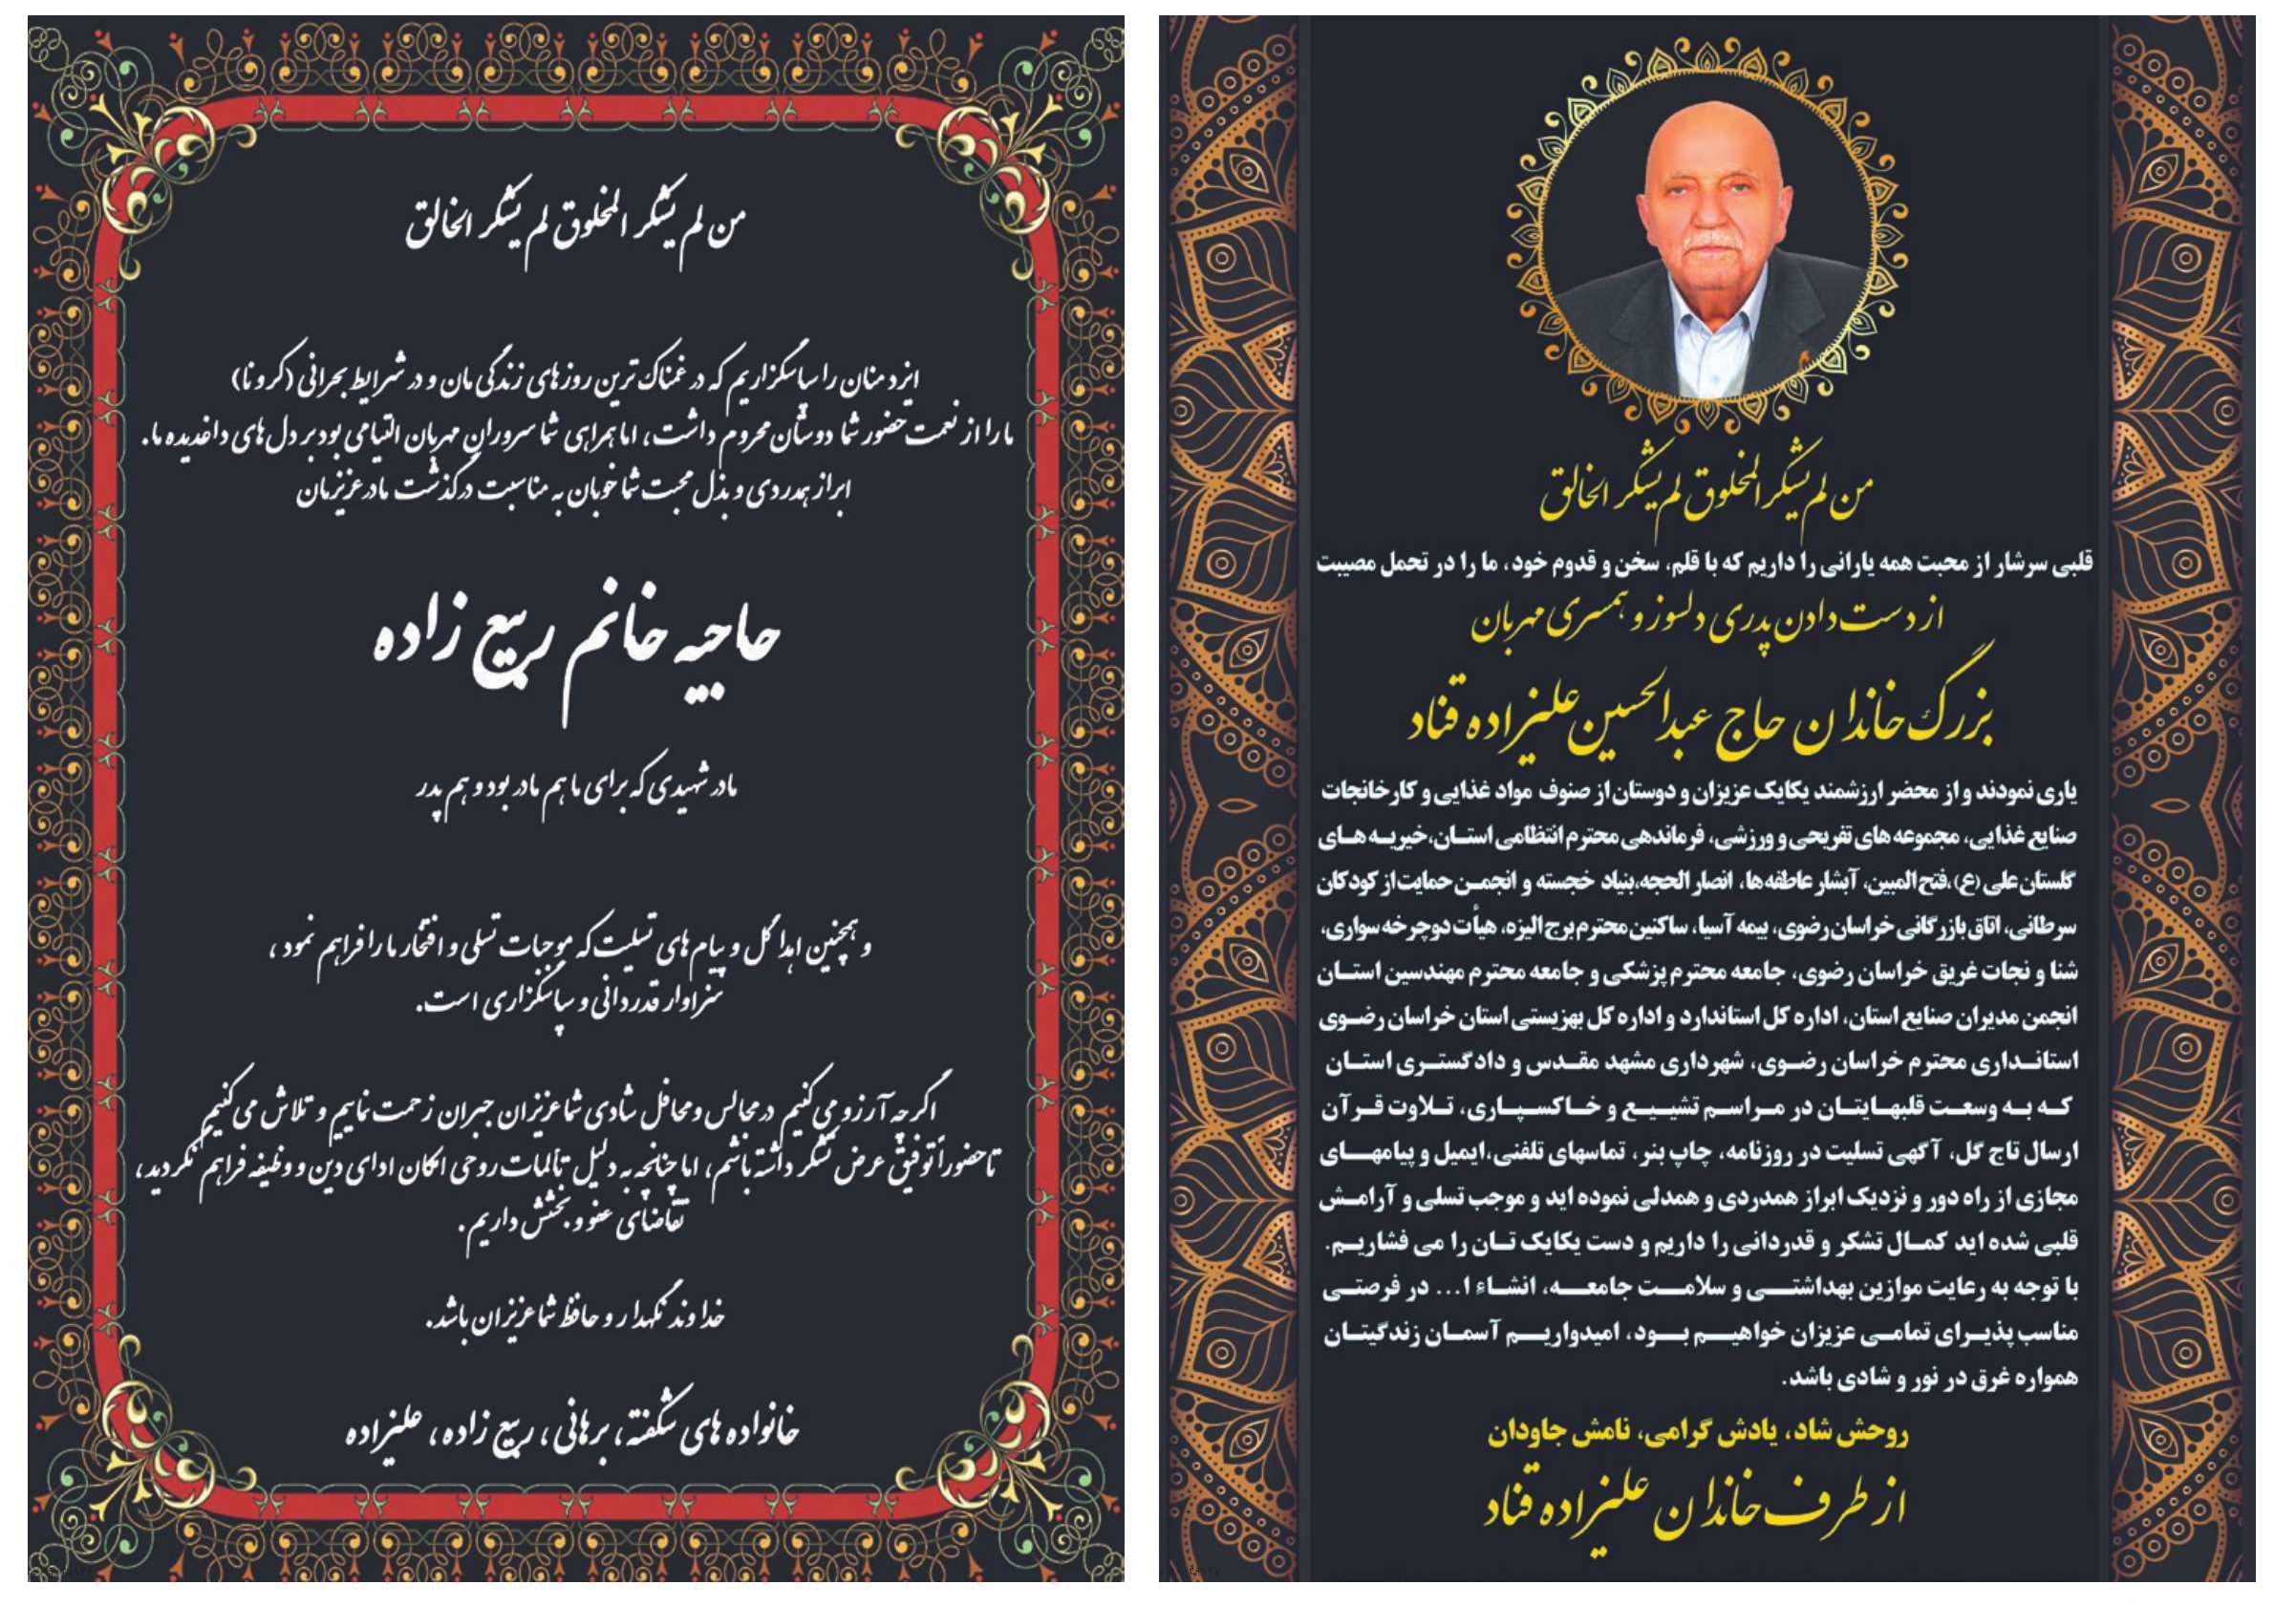 من لم یشکر المخلوق لم یشکر الخالق
قلبی سرشار از محبت همه یارانی را داریم که با قلم، سخن و قدوم خود، ما را در تحمل مصیبت
از دست دادن پدری دلسوز و همسری مهربان
بزرگ خاندان حاج عبدالحسین علیزاده قناد
یاری نمودند و از محضر ارزشمند یکایک عزیزان و دوستان از صنوف مواد غذایی و کارخانجات
صنایع غذایی، مجموعه های تفریحی و ورزشی، فرماندهی محترم انتظامی استـان،خیریـه هـای
گلستان علی (ع)،فتح المبین، آبشار عاطفه ها، انصار الحجه،بنیاد خجسته و انجمـن حمایت از کودکان
سرطانی، اتاق بازرگانی خراسان رضوی، بیمه آسیا، ساکنین محترم برج الیزه، هیأت دوچرخه سواری،
شنا و نجات غریق خراسان رضوی، جامعه محترم پزشکی و جامعه محترم مهندسین استـان
انجمن مدیران صنایع استان، اداره کل استاندارد و اداره کل بهزیستی استان خراسان رضـوی
استانـداری محترم خراسان رضـوی، شهرداری مشهد مقـدس و دادگستـری استـان
کـه بـه وسعـت قلبهـایتـان در مـراسـم تشییـع و خـاکسـپـاری، تـلاوت قـرآن
ارسال تاج گل، آگهی تسلیت در روزنامه، چاپ بنر، تماسهای تلفنی،ایمیل و پیامهـای
مجازی از راه دور و نزدیک ابراز همدردی و همدلی نموده اید و موجب تسلی و آرامـش
قلبی شده اید کمـال تشکر و قدردانی را داریم و دست یکایک تـان را می فشاریـم.
با توجه به رعایت موازین بهداشتـی و سلامـت جامعـه، انشـاء ا... در فرصتـی
مناسب پذیـرای تمامـی عزیزان خواهیـم بـود، امیدواریـم آسمـان زندگیتـان
همواره غرق در نور و شادی باشد.
روحش شاد، یادش گرامی، نامش جاودان
از طرف خاندان علیزاده قناد
من لم یشکر المخلوق لم یشکر الخالق
ایزد منان را سپاسگزاریم که در غمناک ترین روزهای زندگی مان و در شرایط بحرانی (کرونا)
ما را از نعمت حضور شما دوستان محروم داشت، اما همراهی شما سروران مهربان التیامی بود بر دل های داغدیده ما.
ابراز همدردی و بذل محبت شما خوبان به مناسبت درگذشت مادر عزیزمان
حاجیه خانم ربیع زاده
مادر شهیدی که برای ما هم مادر بود و هم پدر
و همچنین اهدا گل و پیام های تسلیت که موجبات تسلی و افتخار ما را فراهم نمود،
سزاوار قدردانی و سپاسگزاری است.
اگرچه آرزو می کنیم در مجالس و محافل شادی شما عزیزان جبران زحمت نماییم و تلاش می کنیم
تا حضوراً توفیق عرض تشکر داشته باشم، اما چنانچه به دلیل تألمات روحی امکان ادای دین و وظیفه فراهم نگردید،
تقاضای عفو و بخشش داریم.
خداوند نگهدار و حافظ شما عزیزان باشد.
خانواده های شگفته، برهانی، ربیع زاده، علیزاده